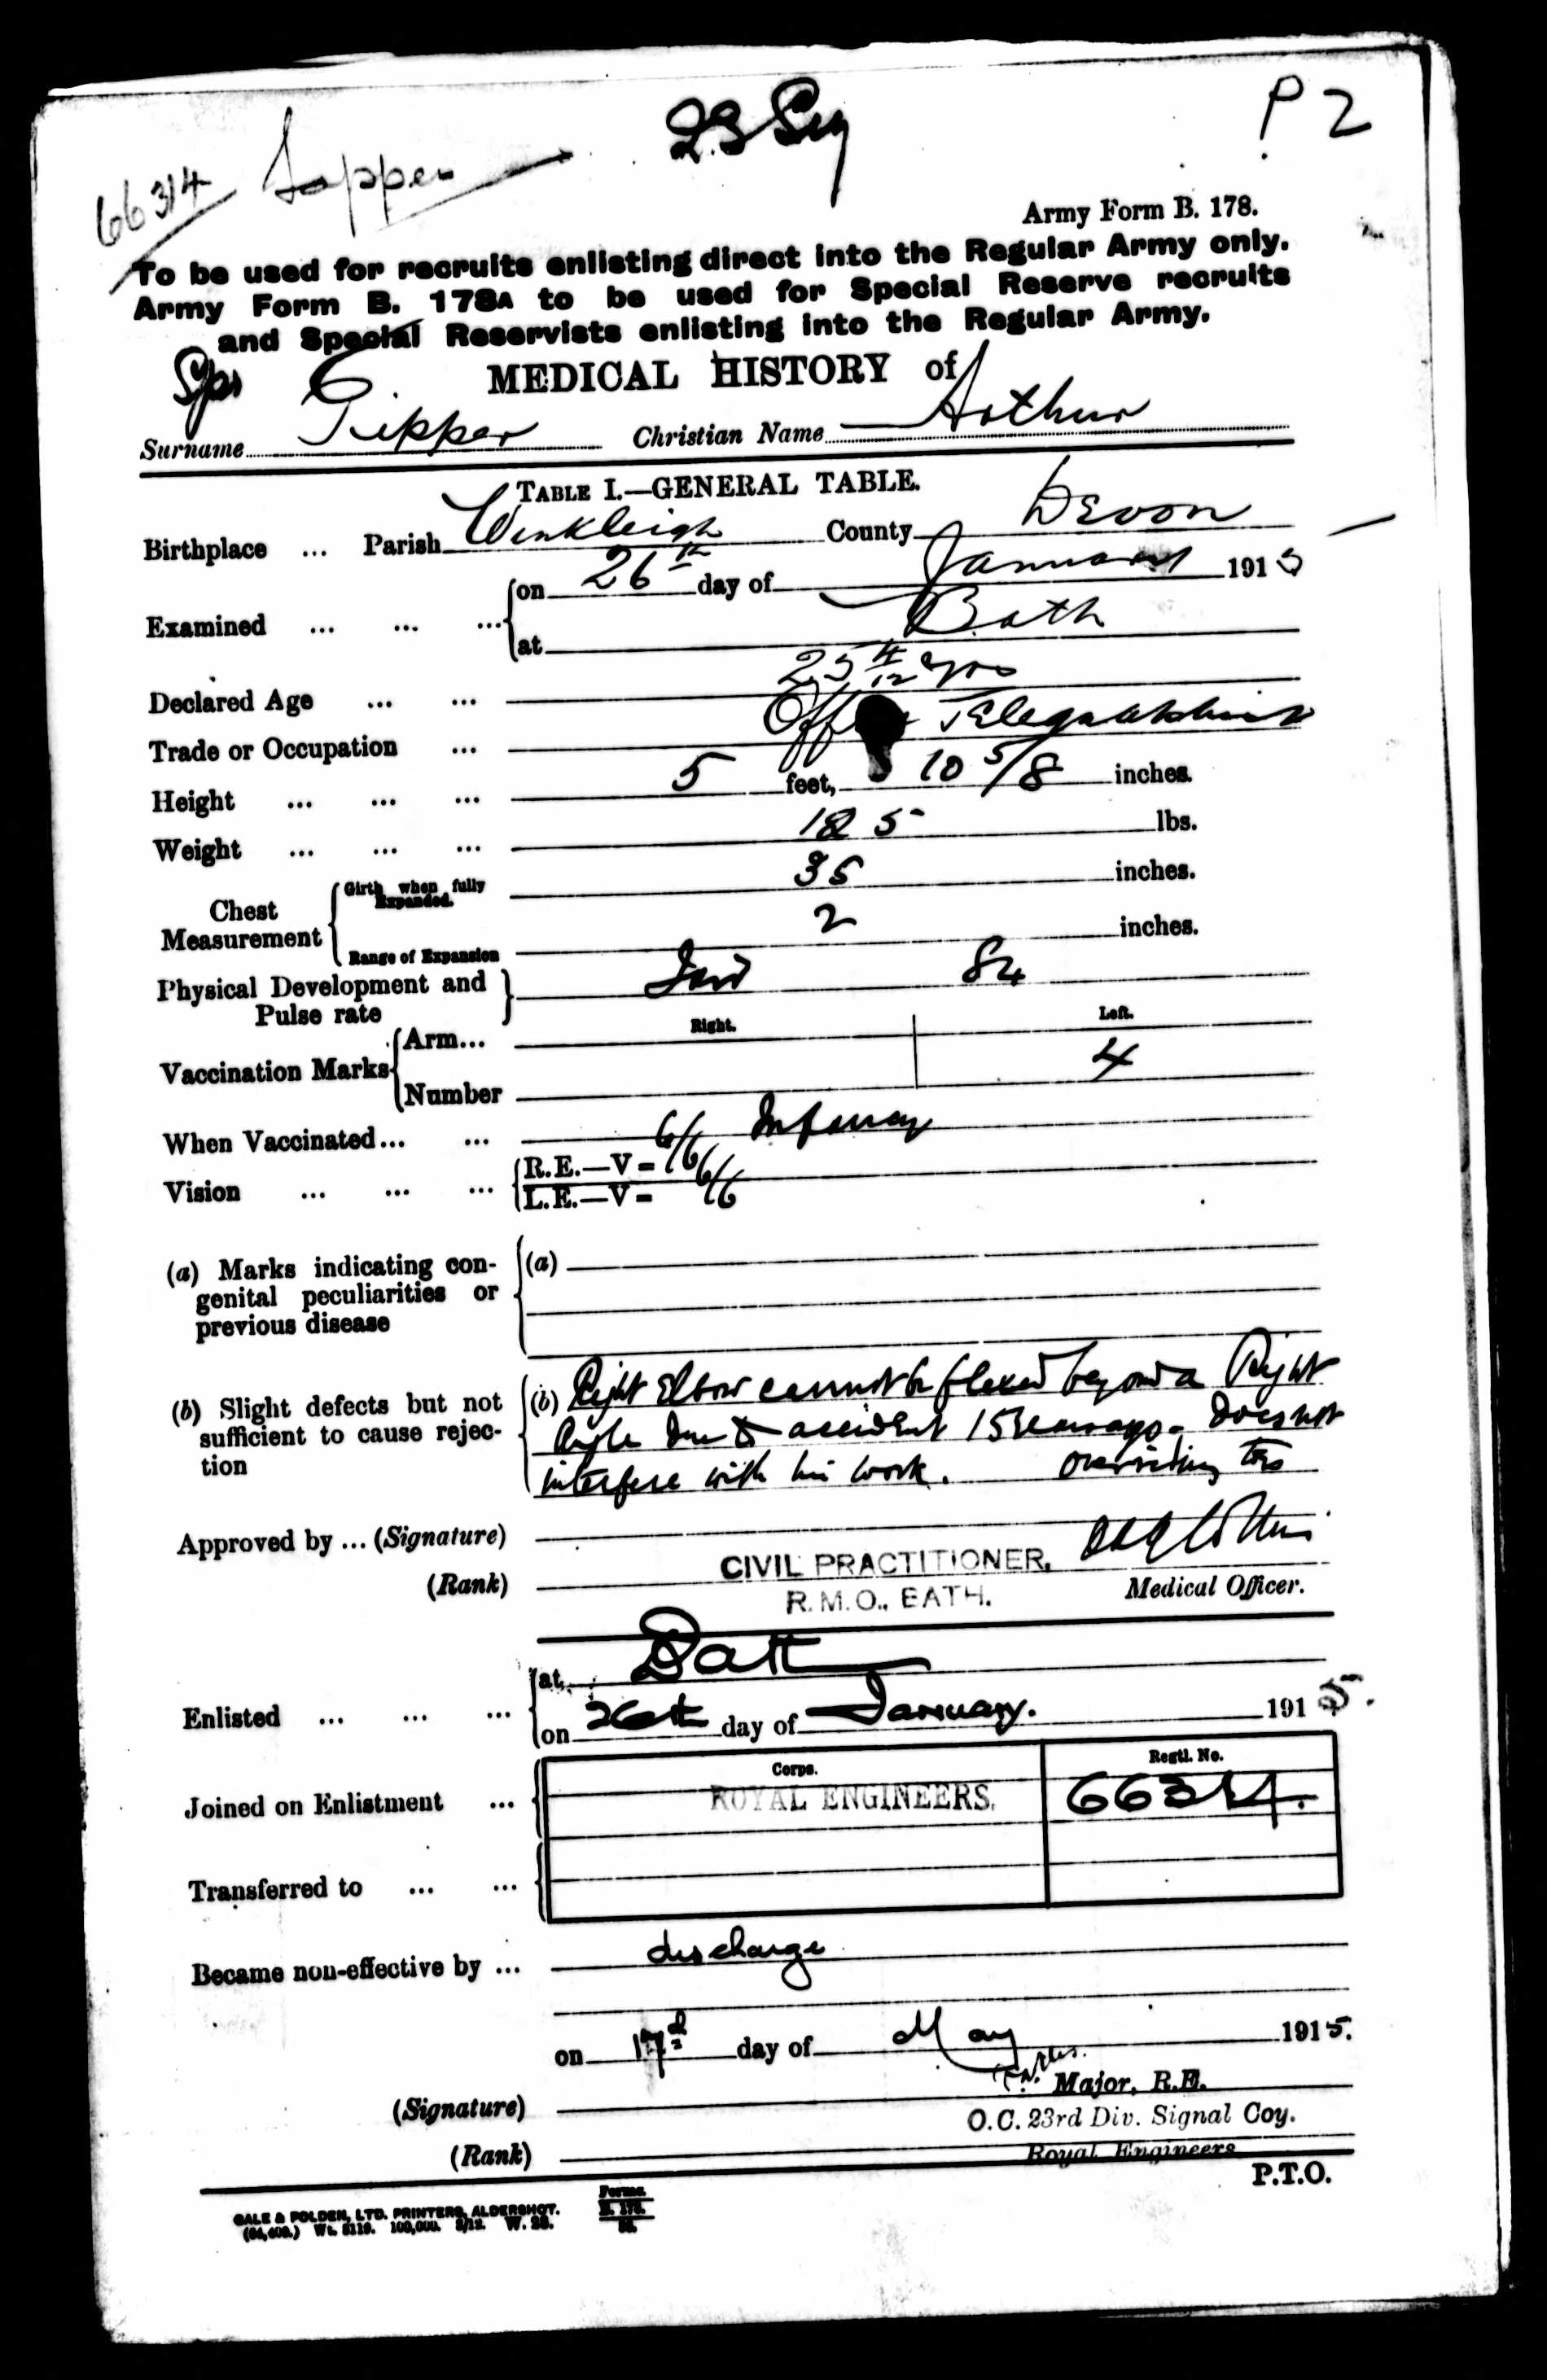 P 2
23 Sig
66314 Sapper
Army Form B. 178.
To be used for recruits enlisting direct into the Regular Army only.
Army Form B. 178A to be used for Special Reserve recruits
and Special Reservists enlisting into the Regular Army.
Spr MEDICAL HISTORY of
Surname Tipper Christian Name Arthur
TABLE I.—GENERAL TABLE.
Birthplace ... Parish Winkleigh County Devon
Examined ... ... ... on 26th day of January 1915
at Bath
Declared Age ... ... 25 4/12 yrs
Trade or Occupation ... Telegraphist
Height ... ... ... 5 feet, 10 5/8 inches.
Weight ... ... ... 185 lbs.
Chest Measurement Girth when fully Expanded. 35 inches.
Range of Expansion 2 inches.
Physical Development and Pulse rate Fair 84
Right. Left.
Vaccination Marks Arm...
Number 4
When Vaccinated... ... Infancy
Vision ... ... ... R.E.—V= 6/6
L.E.—V= 6/6
(a) Marks indicating con- (a)
genital peculiarities or
previous disease
(b) Slight defects but not (b) Right Elbow cannot be flexed beyond a Right
sufficient to cause rejec- Angle due to accident 15 years ago. Does not
tion interfere with his work. overriding toes
Approved by ... (Signature)
CIVIL PRACTITIONER,
(Rank) R.M.O., BATH. Medical Officer.
Enlisted ... ... ... at Bath
on 26th day of January. 1915.
Corps. Regtl. No.
Joined on Enlistment ... ROYAL ENGINEERS. 66314.
Transferred to ... ...
Became non-effective by ... discharge
on 17th day of May 1915.
(Signature) Major, R.E.
O.C. 23rd Div. Signal Coy.
(Rank) Royal Engineers
P.T.O.
GALE & POLDEN, LTD. PRINTERS, ALDERSHOT. Forms
B. 178.